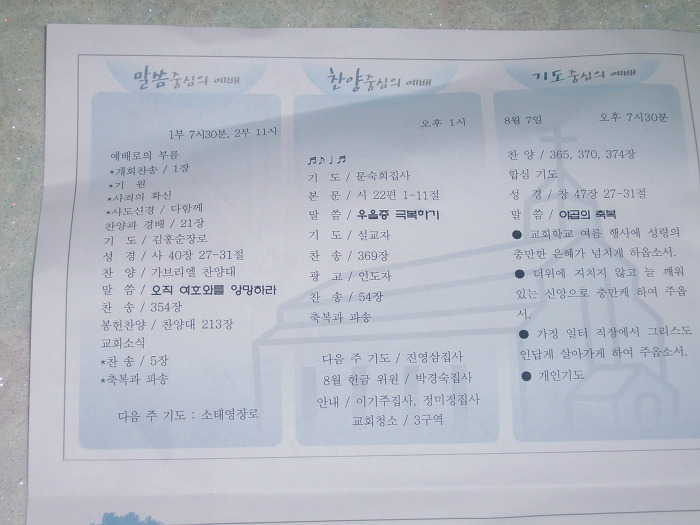 말씀중심의 예배
1부 7시30분, 2부 11시
예배로의 부름
*개회찬송 / 1장
*기 원
*사죄의 확신
*사도신경 / 다함께
찬양과 경배 / 21장
기 도 / 김홍순장로
성 경 / 사 40장 27-31절
찬 양 / 가브리엘 찬양대
말 씀 / 오직 여호와를 앙망하라
찬 송 / 354장
봉헌찬양 / 찬양대 213장
교회소식
*찬 송 / 5장
*축복과 파송
다음 주 기도 : 소태영장로
찬양중심의 예배
오후 1시
♬♪♩♬
기 도 / 문숙희집사
본 문 / 시 22편 1-11절
말 씀 / 우울증 극복하기
기 도 / 설교자
찬 송 / 369장
광 고 / 인도자
찬 송 / 54장
축복과 파송
다음 주 기도 / 진영삼집사
8월 헌금 위원 / 박경숙집사
안내 / 이기주집사, 정미정집사
교회청소 / 3구역
기도중심의 예배
8월 7일 오후 7시30분
찬 양 / 365, 370, 374장
합심 기도
성 경 / 창 47장 27-31절
말 씀 / 야곱의 축복
● 교회학교 여름 행사에 성령의
충만한 은혜가 넘치게 하옵소서.
● 더위에 지치지 않고 늘 깨워
있는 신앙으로 충만케 하여 주옵
서.
● 가정 일터 직장에서 그리스도
인답게 살아가게 하여 주옵소서.
● 개인기도